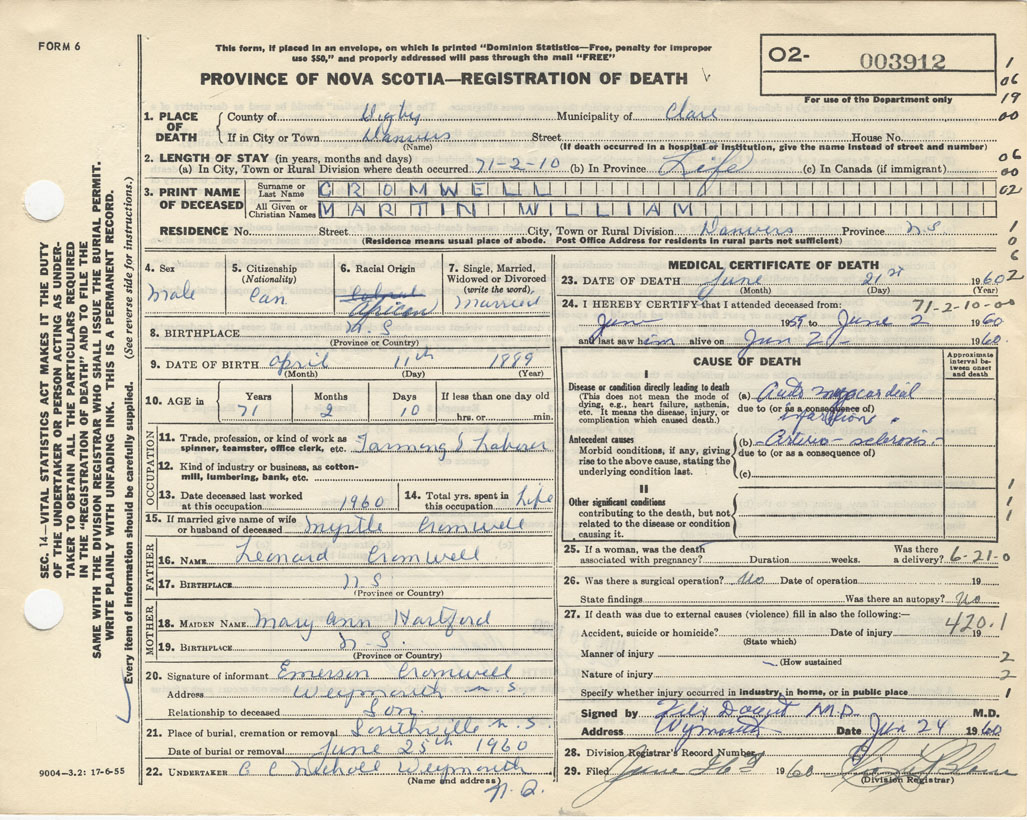 FORM 6
This form, if placed in an envelope, on which is printed "Dominion Statistics—Free, penalty for improper
use $50," and properly addressed will pass through the mail "FREE"
PROVINCE OF NOVA SCOTIA—REGISTRATION OF DEATH
O2- 003912
For use of the Department only
1
06
19
00
06
00
02
1
0
6
2
1. PLACE OF DEATH
County of Digby Municipality of Clare
If in City or Town Danvers Street House No.
(Name) (If death occurred in a hospital or institution, give the name instead of street and number)
2. LENGTH OF STAY (in years, months and days)
(a) In City, Town or Rural Division where death occurred 71-2-10 (b) In Province Life (c) In Canada (if immigrant)
3. PRINT NAME OF DECEASED
Surname or Last Name CROMWELL
All Given or Christian Names MARTIN WILLIAM
RESIDENCE No. Street City, Town or Rural Division Danvers Province N.S.
(Residence means usual place of abode. Post Office Address for residents in rural parts not sufficient)
4. Sex
Male
5. Citizenship
(Nationality)
Can.
6. Racial Origin
African
7. Single, Married,
Widowed or Divorced
(write the word)
Married
8. BIRTHPLACE N.S
(Province or Country)
9. DATE OF BIRTH April 11th 1889
(Month) (Day) (Year)
10. AGE in
Years
71
Months
2
Days
10
If less than one day old
hrs. or min.
OCCUPATION
11. Trade, profession, or kind of work as
spinner, teamster, office clerk, etc. Farming & Laborer
12. Kind of industry or business, as cotton-
mill, lumbering, bank, etc.
13. Date deceased last worked
at this occupation 1960
14. Total yrs. spent in
this occupation Life
15. If married give name of wife
or husband of deceased Myrtle Cromwell
FATHER
16. NAME Leonard Cromwell
17. BIRTHPLACE N.S
(Province or Country)
MOTHER
18. MAIDEN NAME Mary Ann Hartford
19. BIRTHPLACE N-S
(Province or Country)
20. Signature of informant Emerson Cromwell
Address Weymouth N.S
Relationship to deceased Son.
21. Place of burial, cremation or removal Southville N.S
Date of burial or removal June 25th 1960
22. UNDERTAKER C C Nicholl Weymouth
(Name and address)
MEDICAL CERTIFICATE OF DEATH
23. DATE OF DEATH June 21st 1960
(Month) (Day) (Year)
24. I HEREBY CERTIFY that I attended deceased from:
71-2-10-00
Jan 1959 to June 2 1960
and last saw him alive on Jun 2 1960
CAUSE OF DEATH
Approximate
interval be-
tween onset
and death
I
Disease or condition directly leading to death
(This does not mean the mode of
dying, e.g., heart failure, asthenia,
etc. It means the disease, injury, or
complication which caused death.)
(a) myocardial
due to (or as a consequence of)
Antecedent causes
Morbid conditions, if any, giving
rise to the above cause, stating the
underlying condition last.
(b) Arterio-sclerosis-
due to (or as a consequence of)
(c)
II
Other significant conditions
contributing to the death, but not
related to the disease or condition
causing it.
1
1
1
25. If a woman, was the death
associated with pregnancy? Duration weeks. Was there
a delivery? 6-21-0
26. Was there a surgical operation? No Date of operation 19
State findings Was there an autopsy? No
27. If death was due to external causes (violence) fill in also the following:—
420.1
Accident, suicide or homicide? Date of injury 19
(State which)
Manner of injury 2
(How sustained
Nature of injury 2
Specify whether injury occurred in industry, in home, or in public place 1
Signed by M.D. M.D.
Address Wymouth Date Jun 24 1960
28. Division Registrar's Record Number
29. Filed June 1960
(Division Registrar)
9004—3.2: 17-6-55
SEC. 14—VITAL STATISTICS ACT MAKES IT THE DUTY
OF THE UNDERTAKER OR PERSON ACTING AS UNDER-
TAKER TO OBTAIN ALL THE PARTICULARS REQUIRED
IN THE "REGISTRATION OF DEATH" AND TO FILE THE
SAME WITH THE DIVISION REGISTRAR WHO SHALL ISSUE THE BURIAL PERMIT.
WRITE PLAINLY WITH UNFADING INK. THIS IS A PERMANENT RECORD.
Every item of information should be carefully supplied. (See reverse side for instructions.)